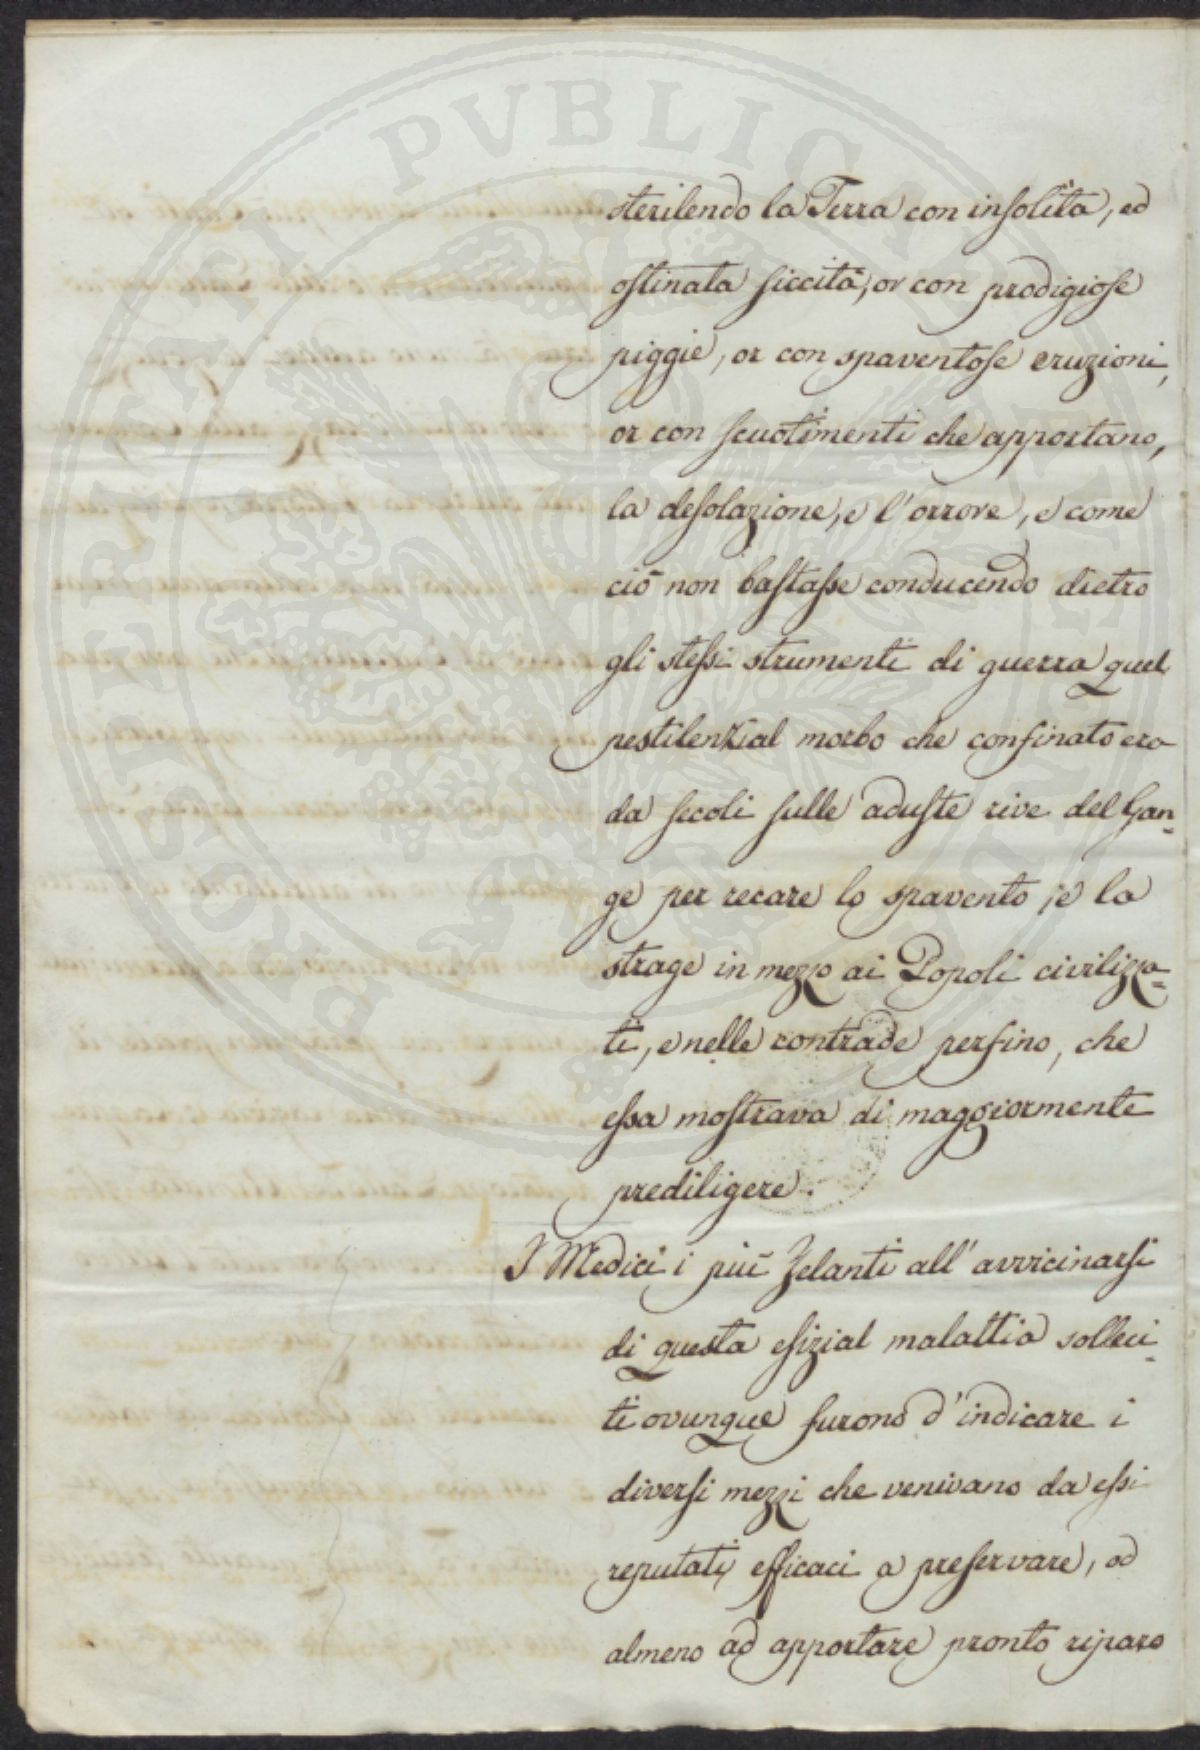 sterilendo la Terra con insolita, ed
ostinata siccità, or con prodigiose
piggie, or con spaventose eruzioni,
or con scuotimenti che apportano,
la desolazione, e l'orrore, e come
ciò non bastasse conducendo dietro
gli stessi strumenti di guerra quel
pestilenzial morbo che confinato era
da secoli sulle aduste rive del Gan-
ge per recare lo spavento, e la
strage in mezzo ai Popoli civilizza-
ti, e nelle contrade perfino, che
essa mostrava di maggiormente
prediligere.
I Medici i più zelanti all'avvicinarsi
di questa esizial malattia solleci-
ti ovunque furono d'indicare i
diversi mezzi che venivano da essi
reputati efficaci a preservare, od
almeno ad apportare pronto riparo
PROSPERITATI PVBLICAE